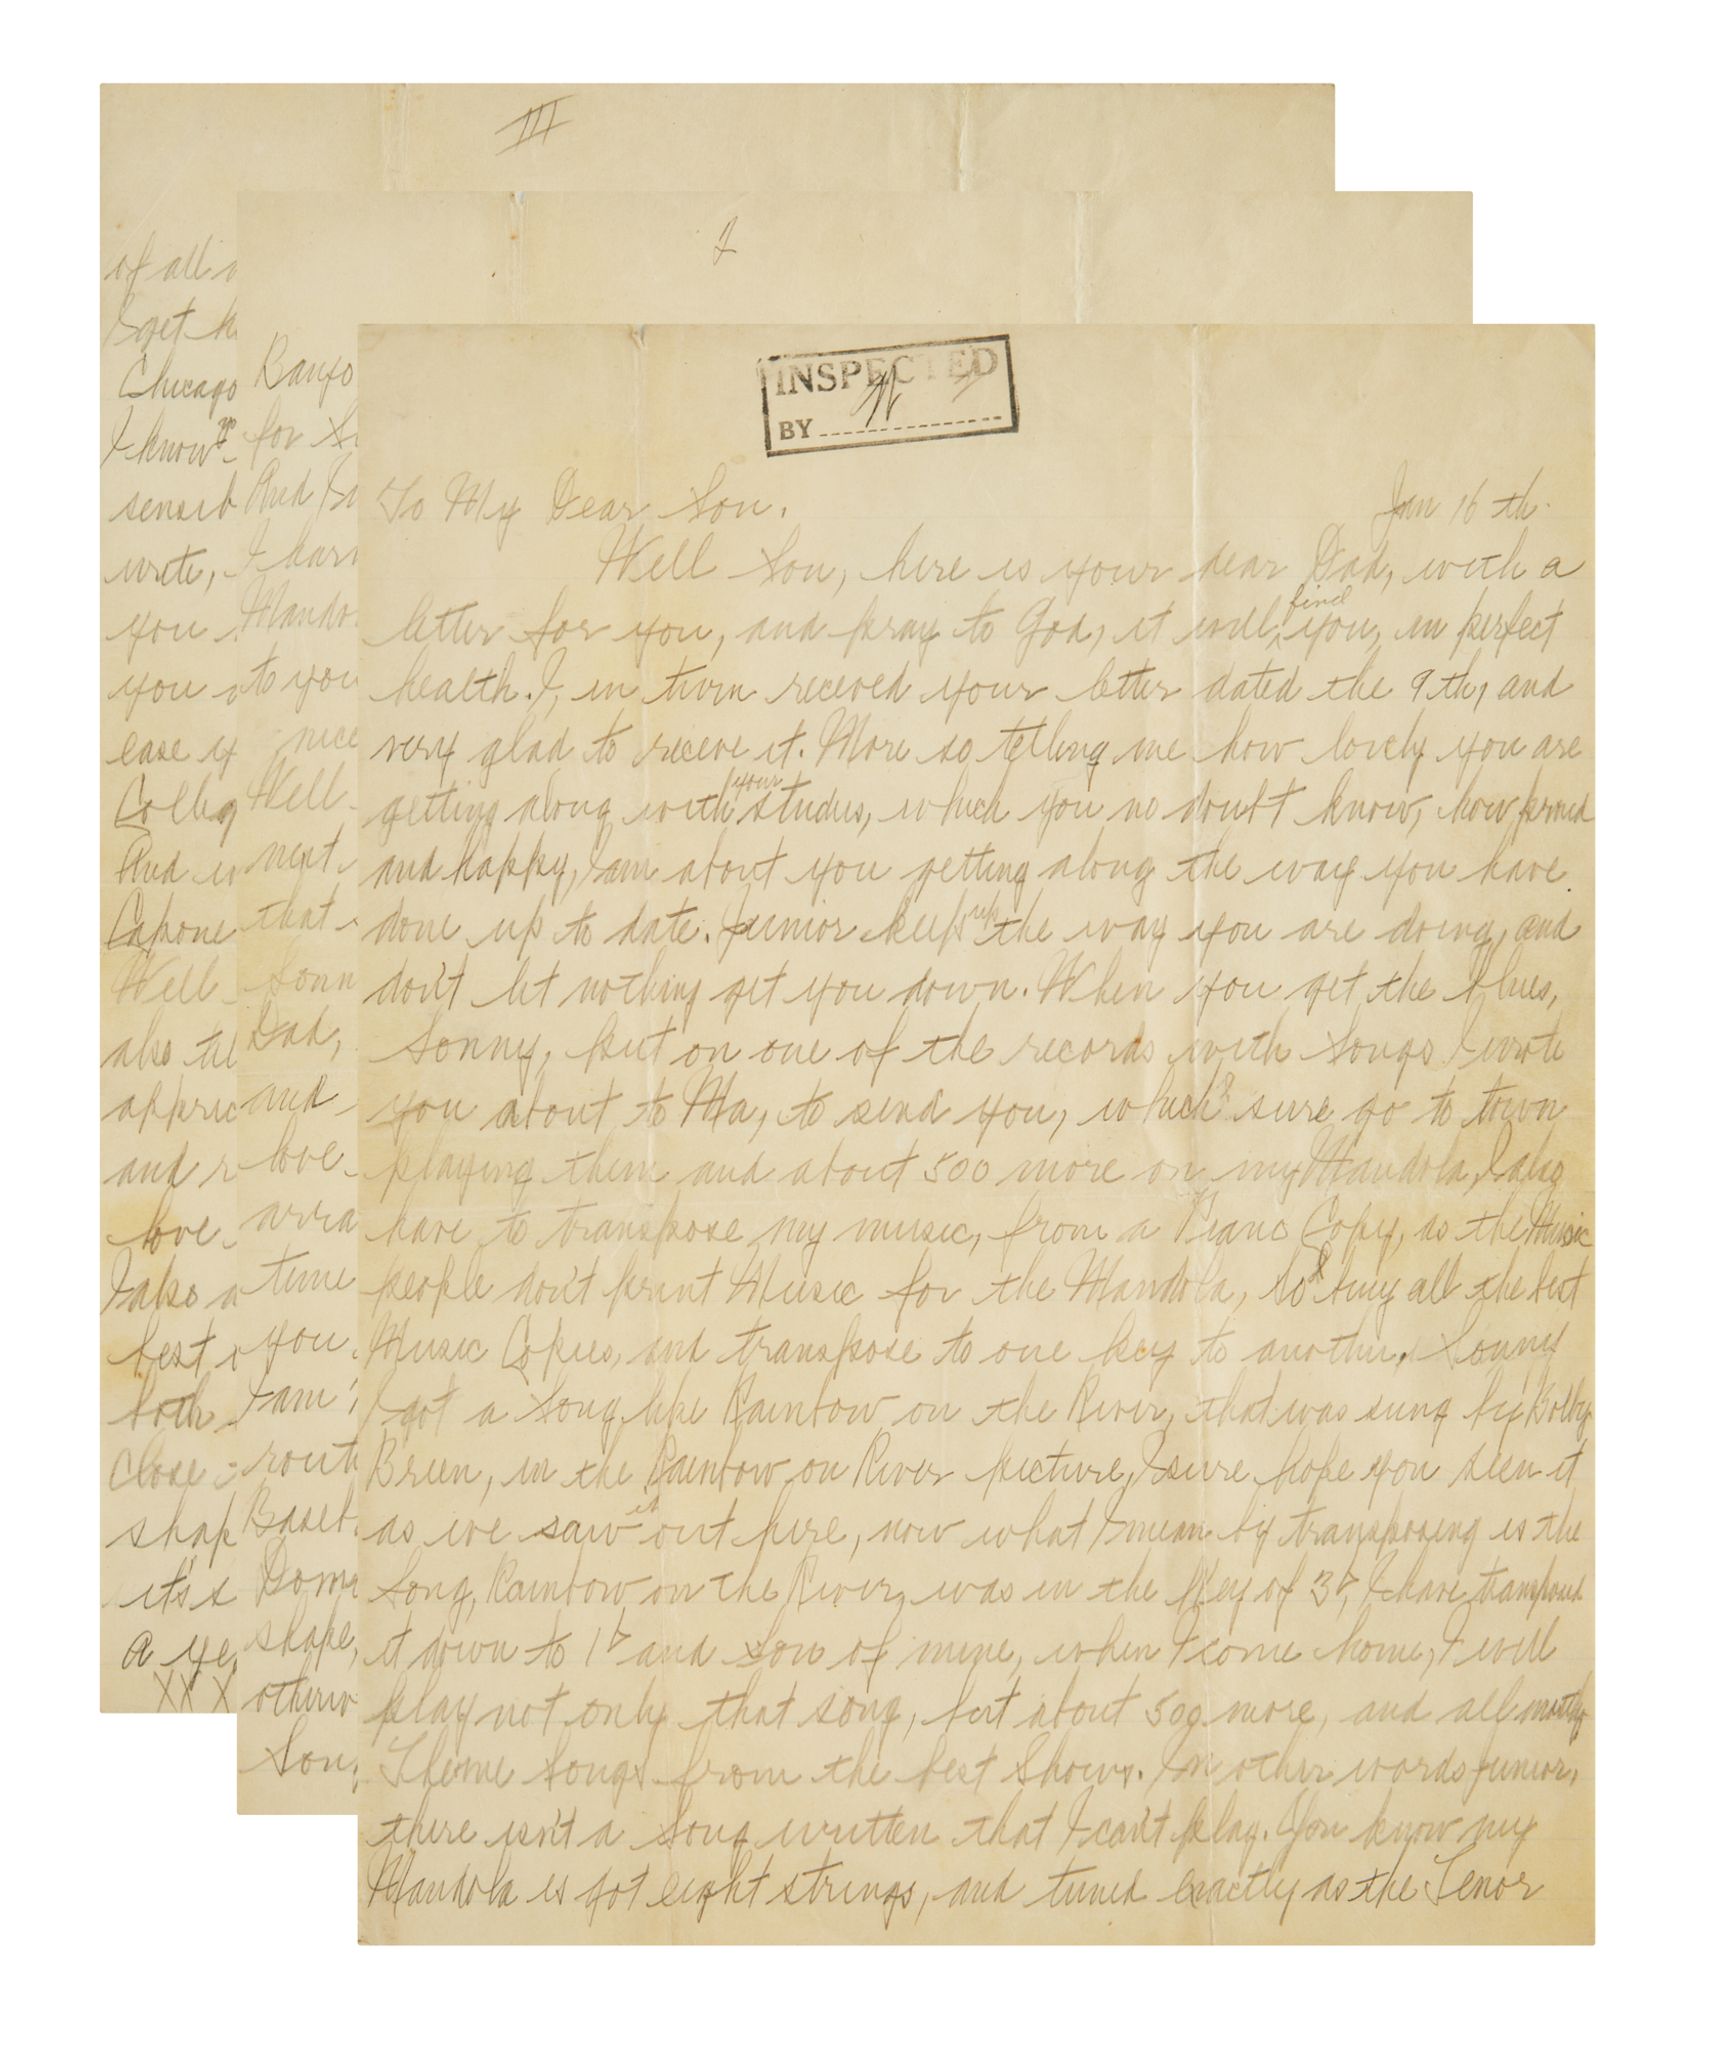 III
of all
I get
Chicago
I know
sensib
write,
you
you
ease
Colleg
And
Capone
Well
also
apprec
and
love
I also
best
both
Close
shap
it's
A ye
XX X
2
Banjo
for
And
I
Mando
to you
nice
Well
next
that
Sonn
Dad,
and
love
arra
time
you
I am
routi
Baseb
Some
shape,
otherw
Son,
INSPECTED
BY
To My Dear Son.
Jan 16 th.
Well Son, here is your dear Dad, with a
letter for you, and pray to God, it will find you, in perfect
health. I, in turn received your letter dated the 9th, and
very glad to receive it. More so telling me how lovely you are
getting along with your studies, which you no doubt know, how proud
and happy, I am about you getting along the way you have
done up to date. Junior keep up the way you are doing, and
don't let nothing get you down. When you get the blues,
Sonny, put on one of the records with songs I wrote
you about to Ma, to send you, which sure go to town
playing them and about 500 more on my Mandola, I also
have to transpose my music, from a Piano Copy, as the Music
people don't print Music for the Mandola, so I buy all the best
Music Copies, and transpose to one key to another. Sonny
I got a song like Rainbow on the River, that was sung by Bobby
Breen, in the Rainbow on River picture, I sure hope you seen it
as we saw it out here, now what I mean by transposing is the
Song, Rainbow on the River, was in the Key of 3♭, I have transposed
it down to 1♭ and Son of mine, when I come home, I will
play not only that song, but about 500 more, and all mostly
Theme Songs from the best Shows. In other words Junior,
there isn't a Song written that I can't play. You know my
Mandola is got eight strings, and tuned exactly as the Tenor